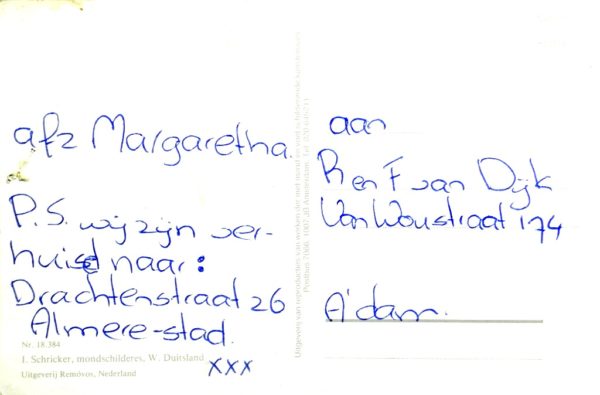 afz Margaretha.
P.S. wij zijn ver-
huisd naar:
Drachtenstraat 26
Almere-stad.
xxx
Nr. 18.384
I. Schricker, mondschilderes, W. Duitsland
Uitgeverij Removos, Nederland
Uitgeverij van reproducties van werken die met mond en voet schilderende kunstenaars
Postbus 7066, 1007 JB Amsterdam, Tel.
aan
R en F van Dijk
Van Woustraat 174
A'dam.